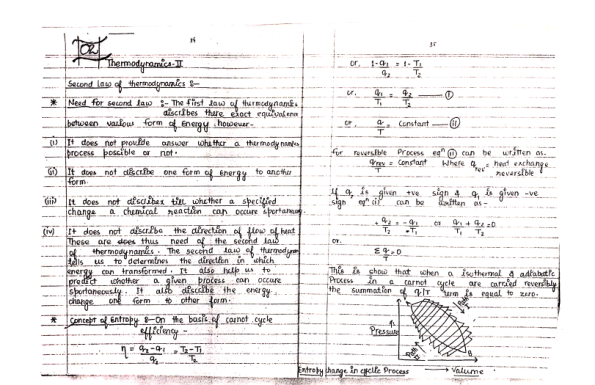 34
02
Thermodynamics-II
Second law of thermodynamics :-
* Need for second law :- The first law of thermodynamics
discribes there exact equivalence
between various form of Energy however.
(i) It does not provide answer whether a thermodynamic
process possible or not.
(ii) It does not discribe one form of Energy to another
form.
(iii) It does not discribes till whether a specified
change a chemical reaction can occure sportaneously
(iv) It does not discribe the direction of flow of heat
These are does thus need of the second law
of thermodynamics. The second law of thermodynamics
tells us to determines the direction in which
energy can transformed. It also help us to
predict whether a given process can occure
sportaneously. It also discribe the energy
change one form to other form.
* Concept of Entropy :- On the basis of carnot cycle
efficiency -
η = q2-q1/q2 = T2-T1/T2
35
or. 1-q1/q2 = 1-T1/T2
or. q1/T1 = q2/T2 — (i)
or q/T = Constant — (ii)
For reversible Process eqn (ii) can be written as-
qrev/T = Constant Where qrev = heat exchange
reversible
If q2 is given +ve sign & q1 is given -ve
sign eqn ii can be written as -
+q2/T2 = -q1/T1 or q1/T1 + q2/T2 = 0
or.
Σ q/T = 0
This is show that when a isothermal & adiabatic
Process in a carnot cycle are carried reversibly
the summation of q/T term is equal to zero.
Pressure
A
B
Volume
Entropy change in cyclic Process